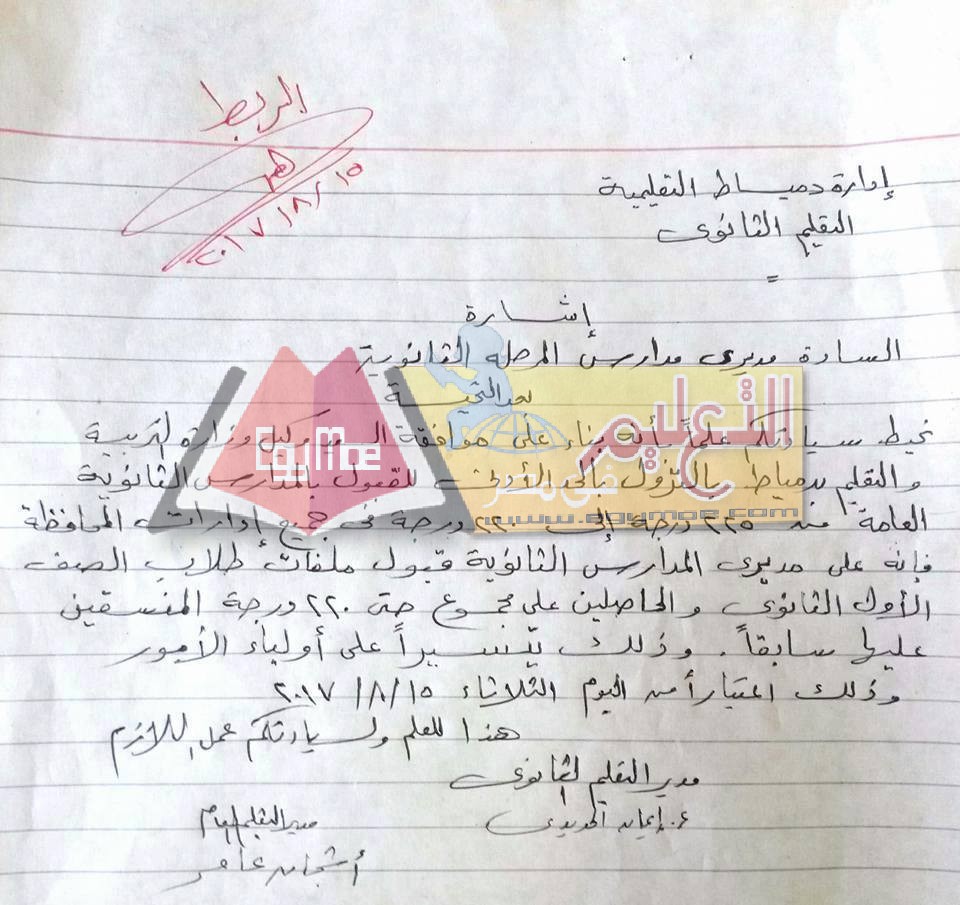 الربط
٢٠١٧/٨/١٥
إدارة دمياط التعليمية
التعليم الثانوى
إشارة
السادة مديرى مدارس المرحلة الثانوية
بعد التحية
نحيط سيادتكم علماً بأنه بناء على موافقة السيد وكيل وزارة التربية
والتعليم بدمياط بالنزول بالحد الأدنى للقبول بالمدارس الثانوية
العامة من ٢٢٥ درجة إلى ٢٢٠ درجة فى جميع إدارات المحافظة
فإنه على مديرى المدارس الثانوية قبول ملفات طلاب الصف
الأول الثانوى والحاصلين على مجموع حتى ٢٢٠ درجة المنسقين
عليها سابقاً. وذلك تيسيراً على أولياء الأمور
وذلك اعتباراً من اليوم الثلاثاء ٢٠١٧/٨/١٥
هذا للعلم ولسيادتكم عمل اللازم
مدير التعليم الثانوى
إيمان الحديدى
مدير التعليم العام
أشجان عامر
التعليم
فى مصر
Egy Moe
www.egymoe.com